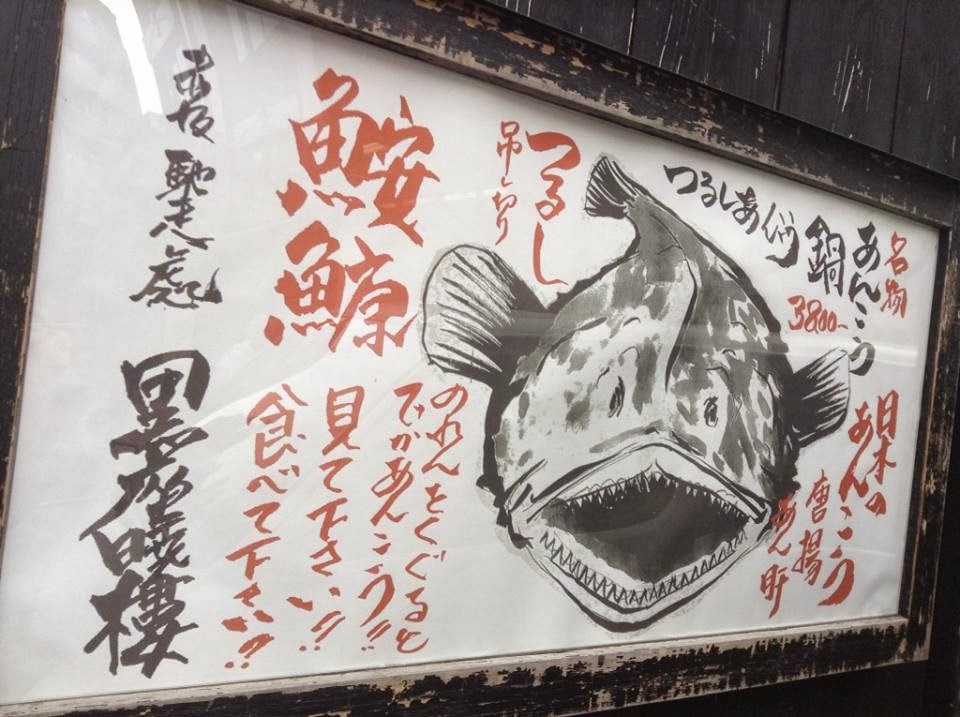 名物
あんこう
鍋
3800-
つるしあんこう
日本の
あんこう
唐揚
あん肝
つるし
吊し切り
鮟鱇
のれんをくぐると
でかあんこう!!
見て下さい!!
食べて下さい!!
馳走処
黒
樓